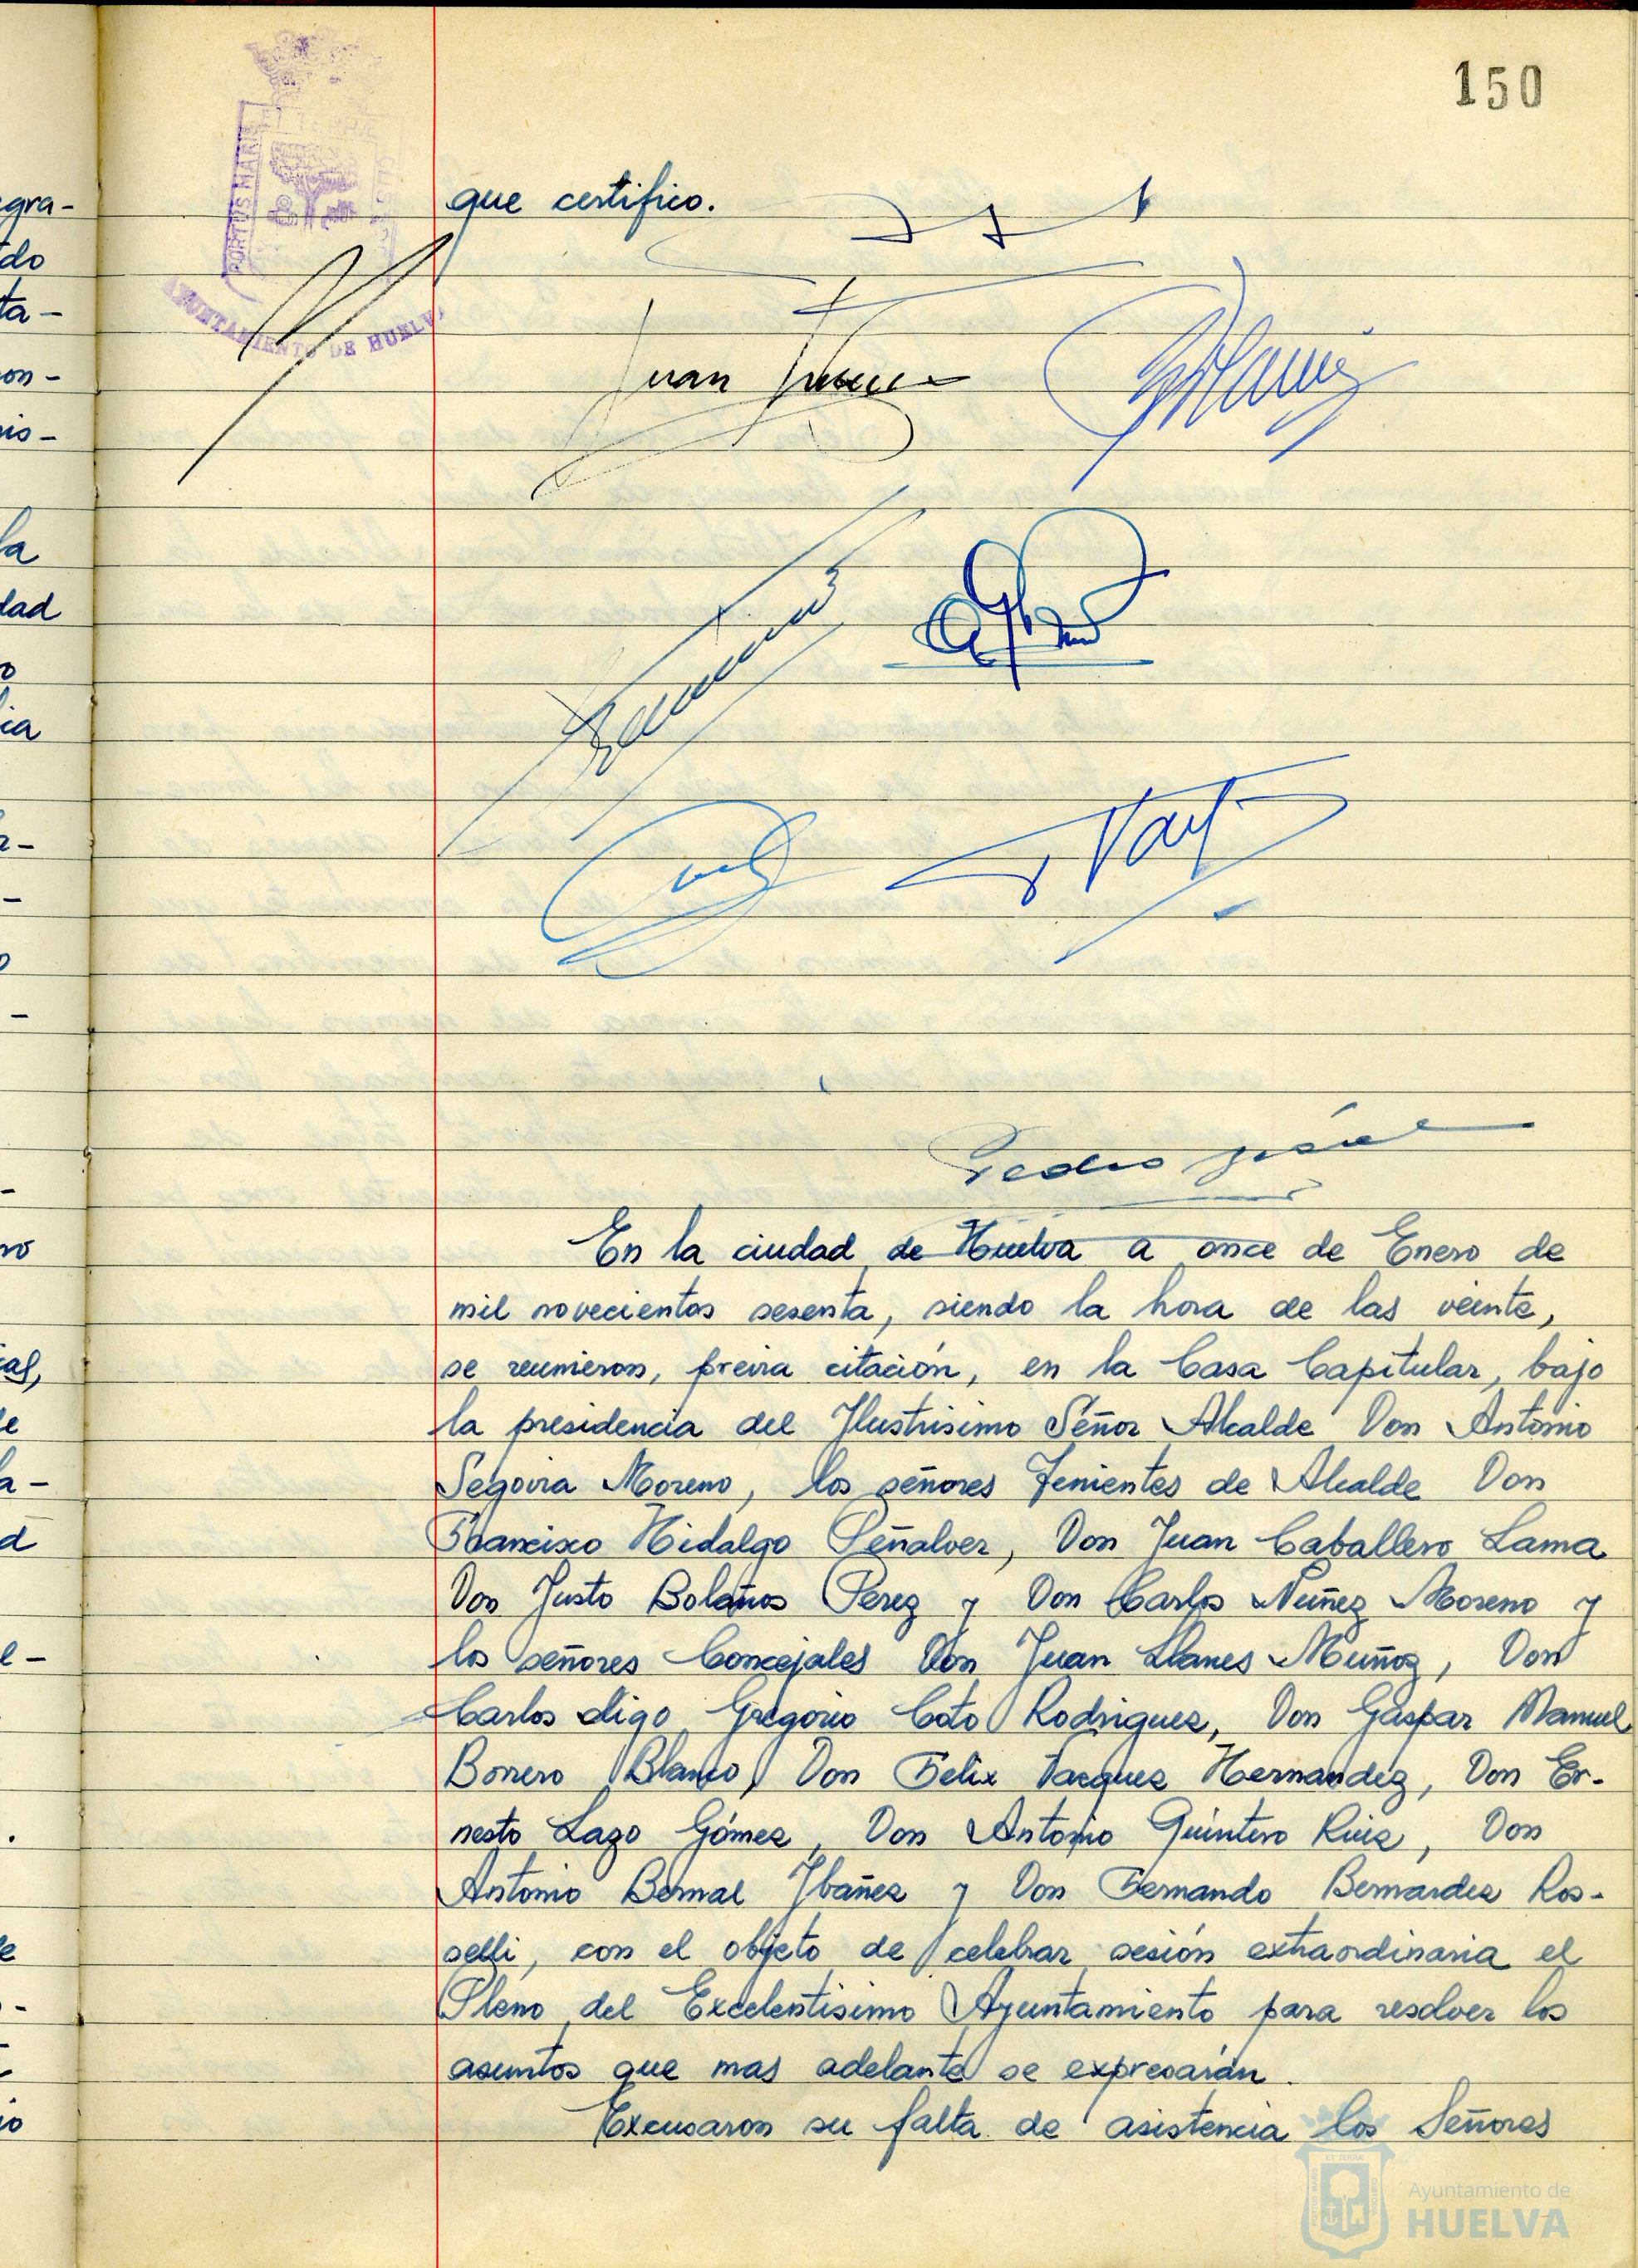 150
PORTUS MARIS ET TERRAE CUSTODIA
AYUNTAMIENTO DE HUELVA
egra-
do
ta-
on-
is-
la
dad
o
ia
que certifico.
Juan
Pedro
En la ciudad de Huelva a once de Enero de
mil novecientos sesenta, siendo la hora de las veinte,
se reunieron, previa citación, en la Casa Capitular, bajo
la presidencia del Ilustrisimo Señor Alcalde Don Antonio
Segovia Moreno, los señores Tenientes de Alcalde Don
Francisco Hidalgo Peñalver, Don Juan Caballero Lama
Don Justo Bolaños Perez y Don Carlos Nuñez Moreno y
los señores Concejales Don Juan Llanes Muñoz, Don
Carlos digo Gregorio Coto Rodriguez, Don Gaspar Manuel
Borrero Blanco, Don Felix Vazquez Hernandez, Don Er-
nesto Lazo Gómez, Don Antonio Quintero Ruiz, Don
Antonio Bernal Ibañez y Don Fernando Bernardez Ros-
selli, con el objeto de celebrar sesión extraordinaria el
Pleno del Excelentisimo Ayuntamiento para resolver los
asuntos que mas adelante se expresarán.
Excusaron su falta de asistencia los Señores
Ayuntamiento de
HUELVA